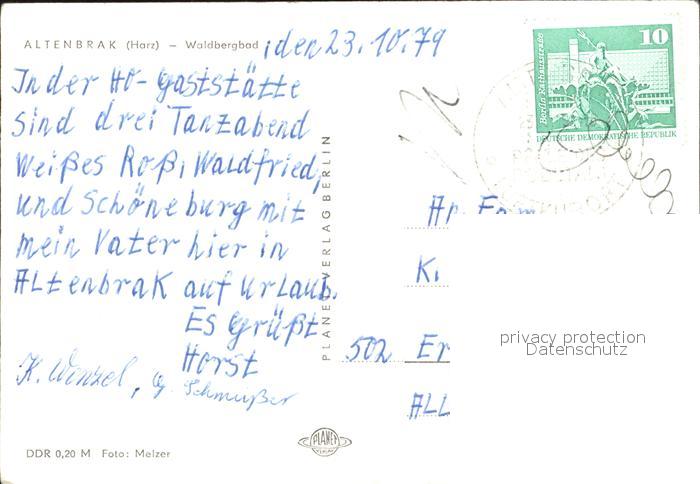 ALTENBRAK (Harz) – Waldbergbad
, den 23.10.79
In der HO-Gaststätte
sind drei Tanzabend
Weißes Roß, Waldfried,
und Schöneburg mit
mein Vater hier in
Altenbrak auf Urlaub.
Es Grüßt
Horst
K. Wenzel, G. Schmußer
DDR 0,20 M Foto: Melzer
PLANET-VERLAG BERLIN
PLANET
VERLAG
10
Berlin Rathausstraße
DEUTSCHE DEMOKRATISCHE REPUBLIK
An Fam
K
502 Er
All
privacy protection
Datenschutz